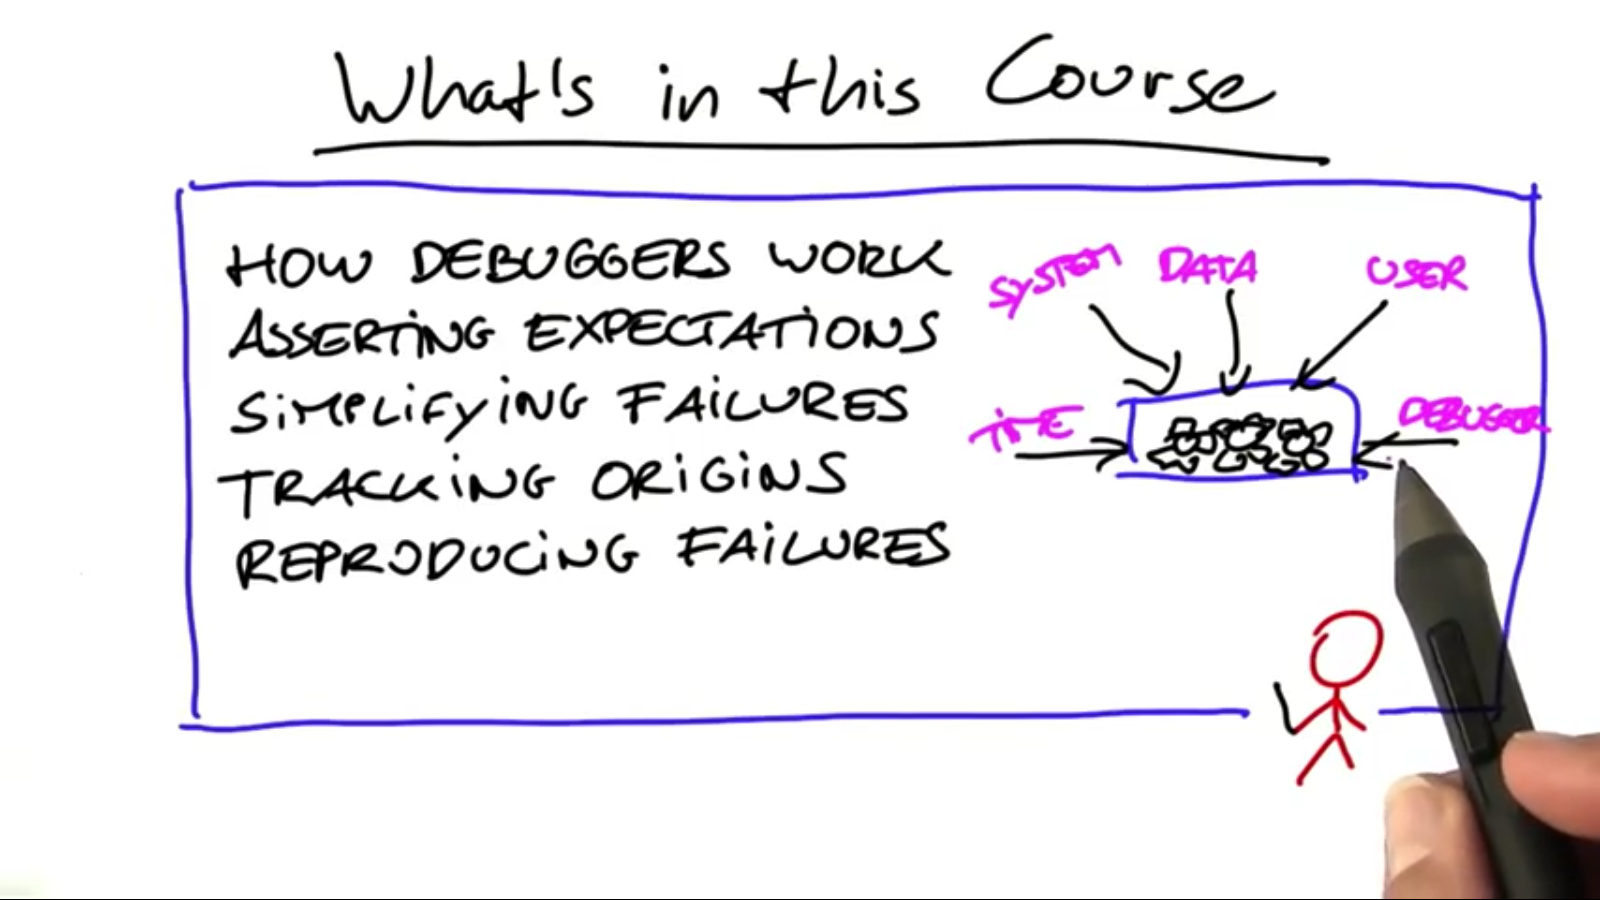 What's in this Course
HOW DEBUGGERS WORK
ASSERTING EXPECTATIONS
SIMPLIFYING FAILURES
TRACKING ORIGINS
REPRODUCING FAILURES
SYSTEM DATA USER
TIME DEBUGGER